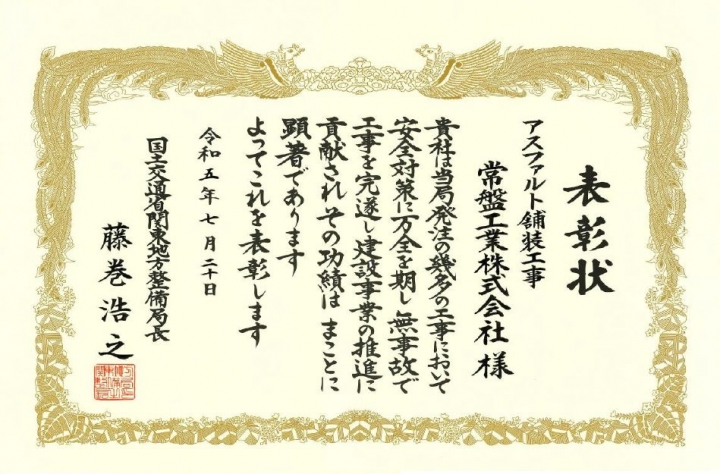 表彰状
アスファルト舗装工事
常盤工業株式会社様
貴社は当局発注の幾多の工事において
安全対策に万全を期し無事故で
工事を完遂し建設事業の推進に
貢献されその功績はまことに
顕著であります
よってこれを表彰します
令和五年七月二十日
国土交通省関東地方整備局長
藤巻浩之